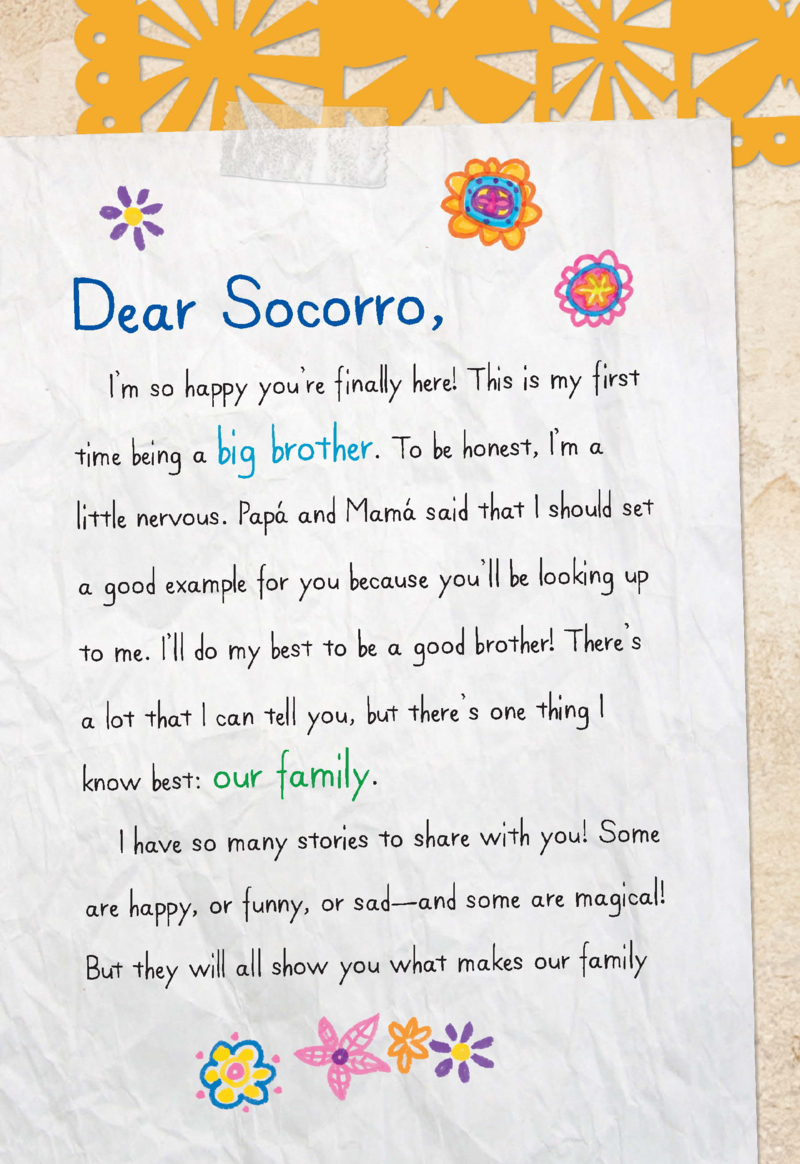 Dear Socorro,
I'm so happy you're finally here! This is my first
time being a big brother. To be honest, I'm a
little nervous. Papá and Mamá said that I should set
a good example for you because you'll be looking up
to me. I'll do my best to be a good brother! There's
a lot that I can tell you, but there's one thing I
know best: our family.
I have so many stories to share with you! Some
are happy, or funny, or sad—and some are magical!
But they will all show you what makes our family